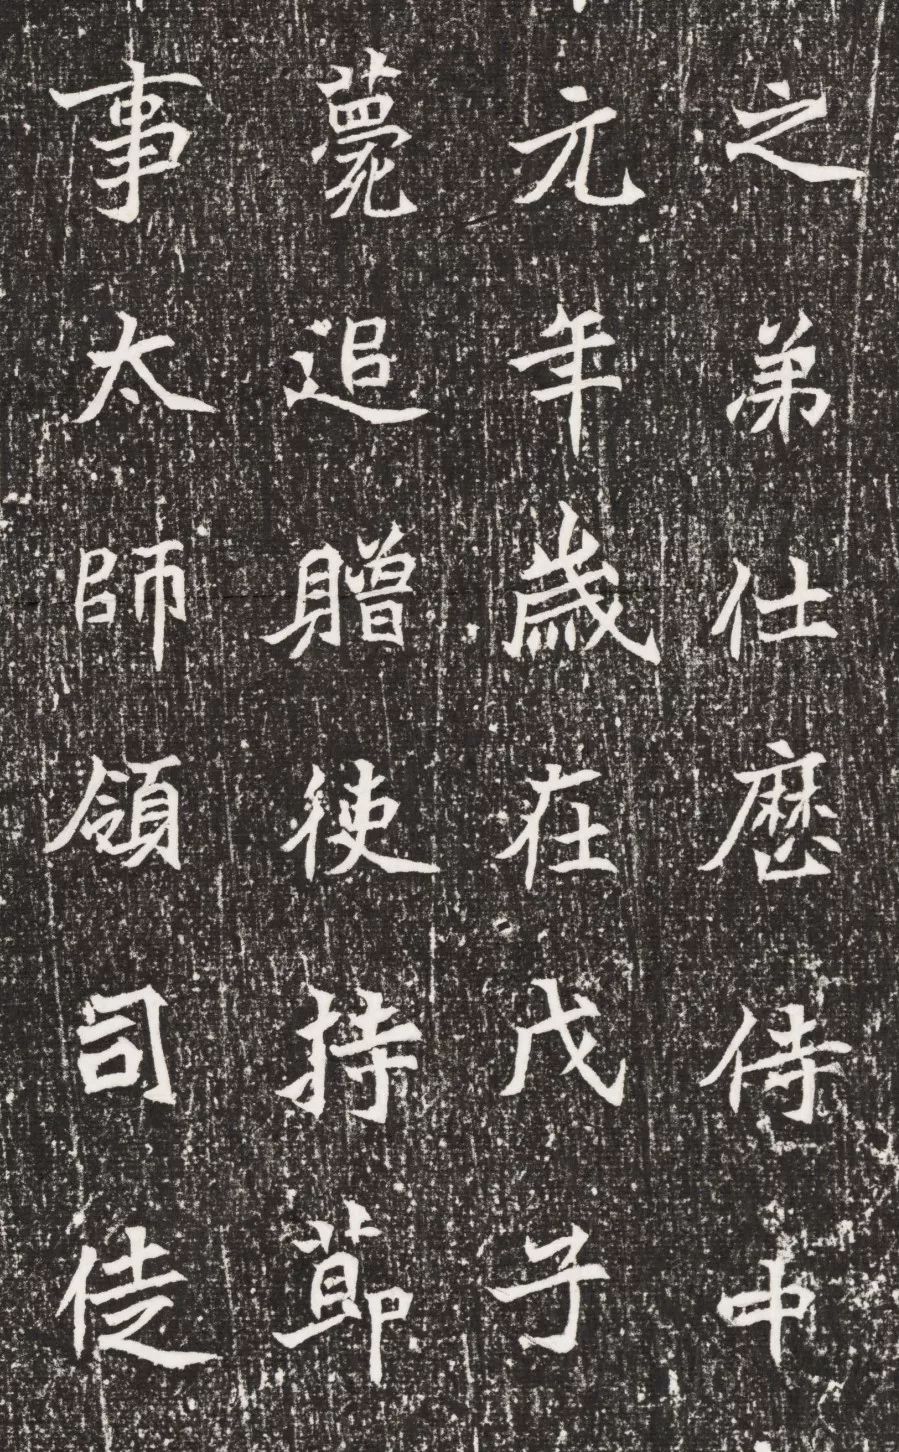 之弟仕歷侍中
元年歲在戊子
薨追贈使持節
事太師領司徒